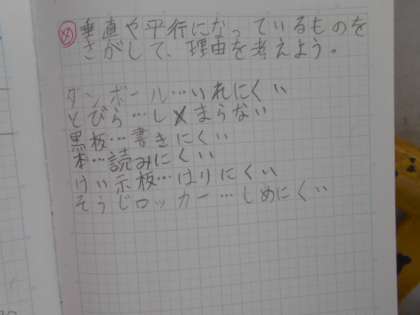 め 垂直や平行になっているものを
さがして、理由を考えよう。
ダンボール…いれにくい
とびら…しまらない
黒板…書きにくい
本…読みにくい
けい示板…はりにくい
そうじロッカー…しめにくい